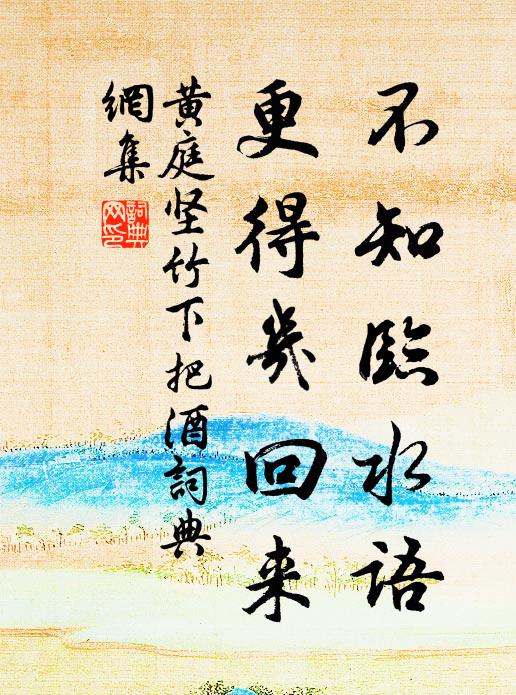 不知臨水语
更得幾回来
黄庭坚竹下把酒詞典
網集
詞典
网印